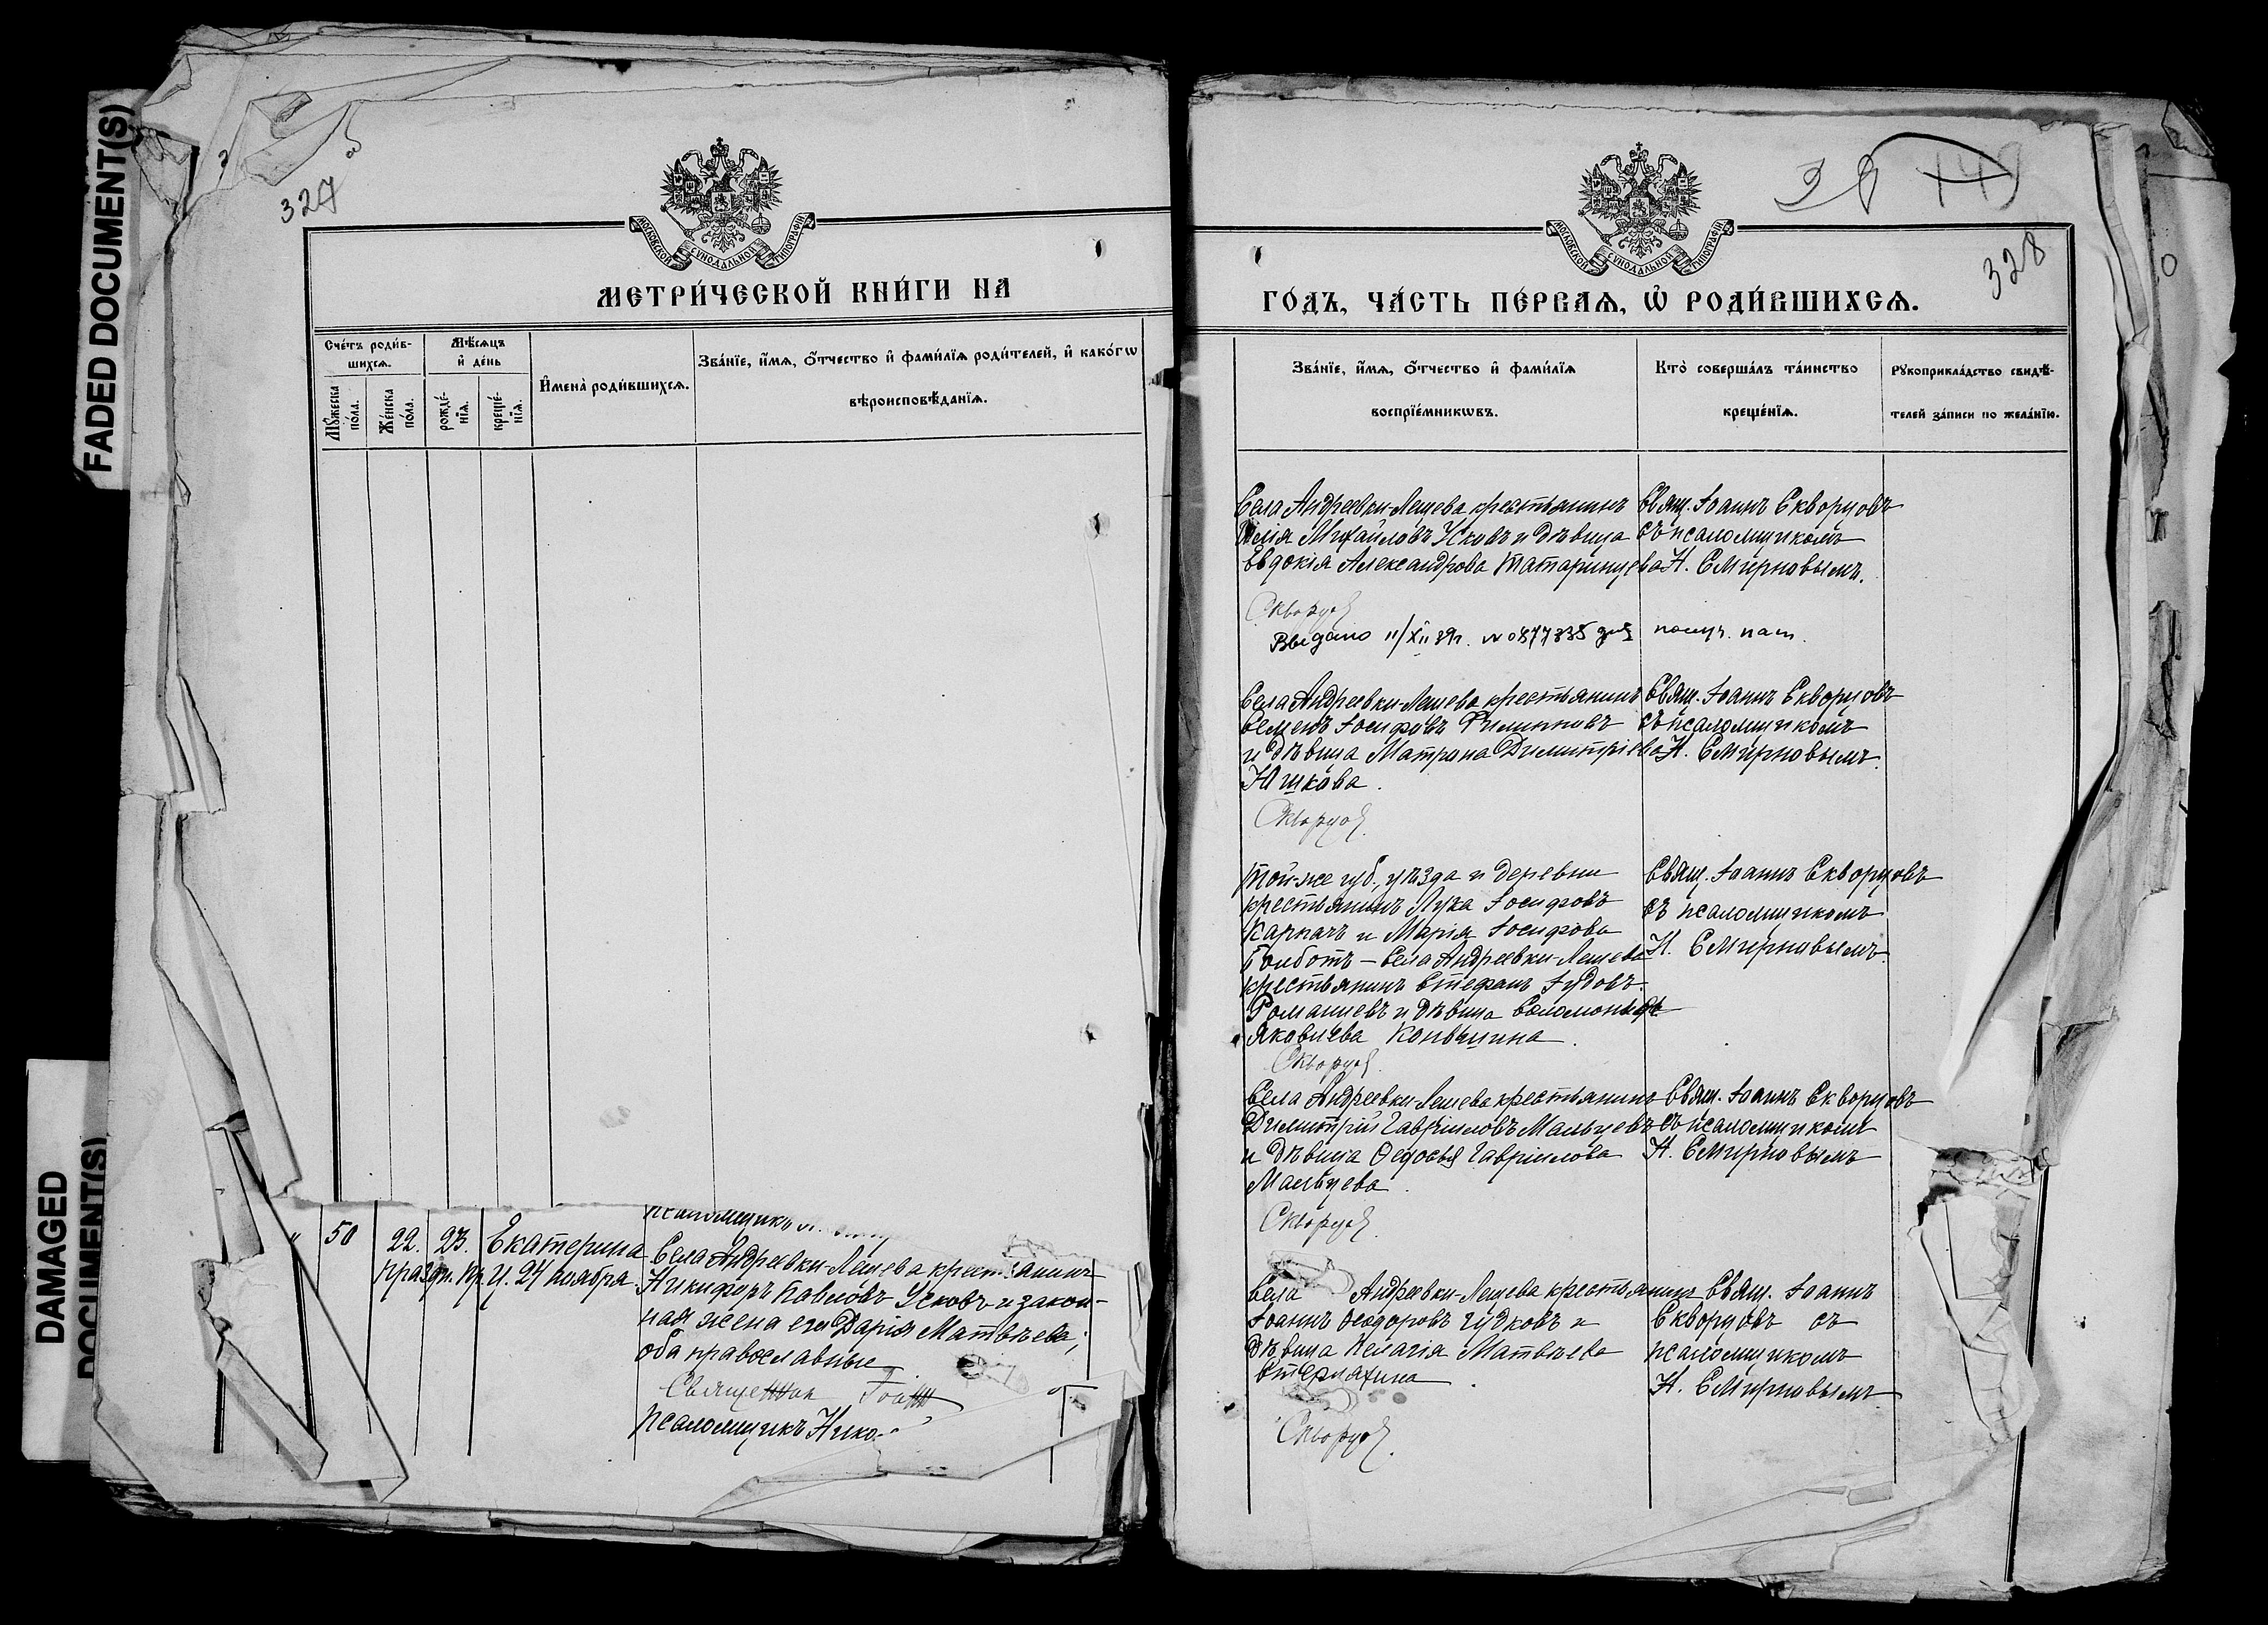 FADED DOCUMENT(S)
DAMAGED
DOCUMENT(S)
327
МОСКОВСКОЙ СѴНОДАЛЬНОЙ ТИПОГРАФІИ
МЕТРИ́ЧЕСКОЙ КНИ́ГИ НА
Сче́тъ роди́в-
шихсѧ.
Мꙋ́жеска
по́ла.
Же́нска
по́ла.
Мѣ́сѧцъ
и҆ де́нь
рожде́-
нїѧ.
креще́-
нїѧ.
И҆мена̀ роди́вшихсѧ.
Зва́нїе, и҆́мѧ, ѻ҆́тчество и҆ фами́лїѧ роди́телей, и҆ како́гѡ
вѣроисповѣ́данїѧ.
" 50 22. 23. Екатерина
праздн. 24 ноября.
Села Андреевки-Лещева крестьянинъ
Никифоръ Павловъ Усковъ и закон-
ная жена его Дарія Матвѣева;
оба православные
Священник Іоанн
Псаломщикъ Нико
328
МОСКОВСКОЙ СѴНОДАЛЬНОЙ ТИПОГРАФІИ
ГО́ДЪ, ЧА́СТЬ ПЕ́РВАѦ, Ѽ РОДИ́ВШИХСѦ.
Зва́нїе, и҆́мѧ, ѻ҆́тчество и҆ фами́лїѧ
воспрїе́мникѡвъ.
Кто̀ соверша́лъ та́инство
креще́нїѧ.
Рꙋкоприкла́дство свидѣ́-
телей за́писи по жела́нїю.
Села Андреевки-Лещева крестьянинъ
Илія Михайловъ Усковъ и дѣвица
Евдокія Александрова Татаринцева
Свящ. Іоаннъ Скворцовъ
съ псаломщикомъ
Н. Смирновымъ.
Скворцов
Выдано 11/XII 39г. № 0877335 для получ. пасп.
Села Андреевки-Лещева крестьянинъ
Семенъ Іосифовъ Филипповъ
и дѣвица Матрона Димитріева
Юшкова.
Свящ. Іоаннъ Скворцовъ
съ псаломщикомъ
Н. Смирновымъ.
Скворцов
Той-же губ., уѣзда и деревни
крестьянинъ Лука Іосифовъ
Карпачъ и Марія Іосифова
Голботъ — села Андреевки-Лещева
крестьянинъ Стефанъ Іудовъ
Романцевъ и дѣвица Соломонида
Яковлева Коньшина.
Свящ. Іоаннъ Скворцовъ
съ псаломщикомъ
Н. Смирновымъ.
Скворцов
Села Андреевки-Лещева крестьянинъ
Димитрій Гавріиловъ Мальцевъ
и дѣвица Ѳедосья Гавріилова
Мальцева.
Свящ. Іоаннъ Скворцовъ
съ псаломщикомъ
Н. Смирновымъ
Скворцов
Села Андреевки-Лещева крестьянинъ
Іоаннъ Ѳеодоровъ Гудковъ и
дѣвица Пелагія Матвѣева
Стерляхина.
Свящ. Іоаннъ
Скворцовъ съ
псаломщикомъ
Н. Смирновымъ.
Скворцов